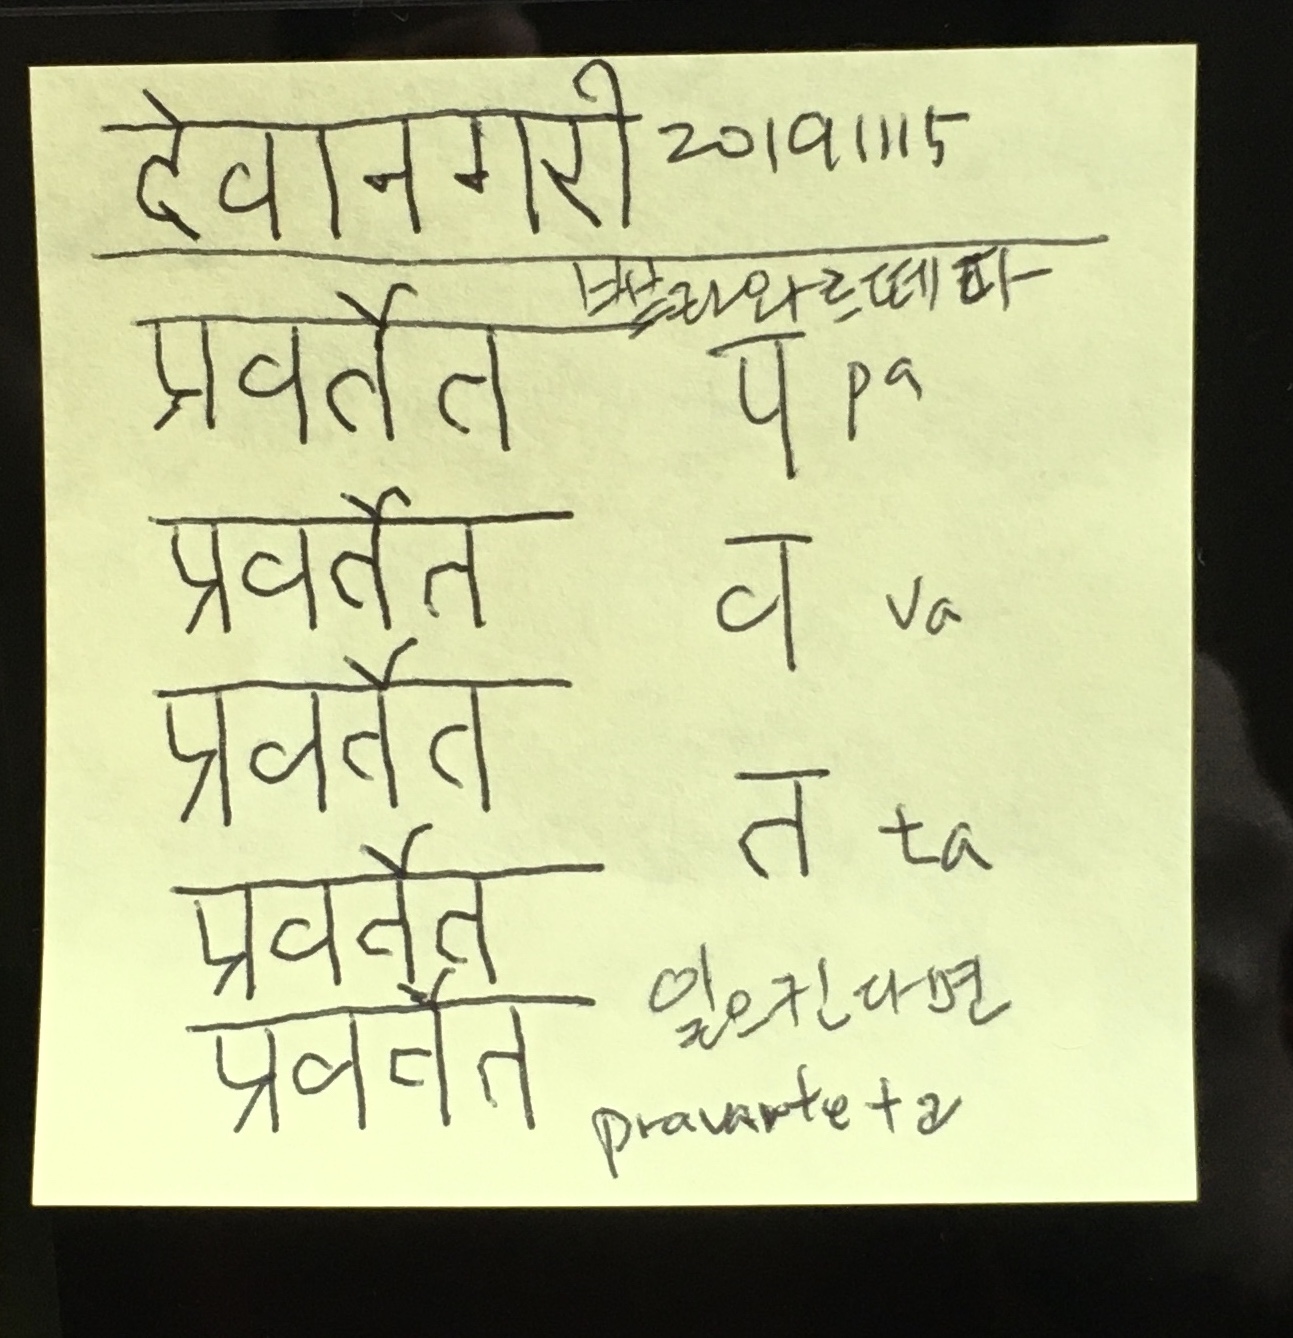 देवानगरी 20191115
쁘라와르떼따
प्रवर्तेत प pa
प्रवर्तेत व va
प्रवर्तेत
त ta
प्रवर्तेत
일으킨다면
प्रवर्तेत
pravarteta